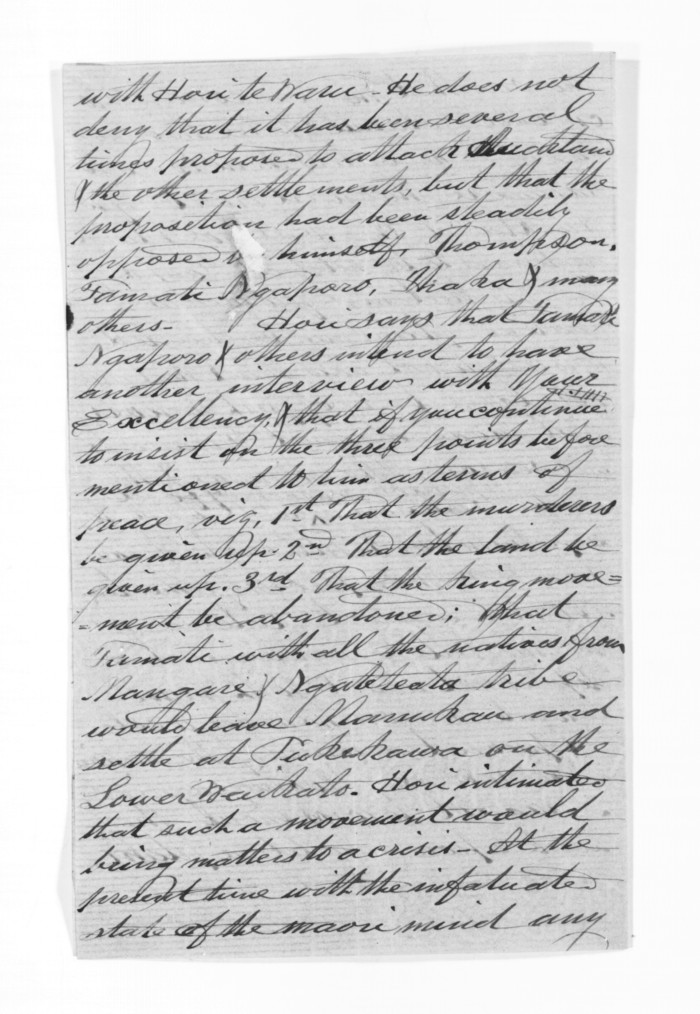 with Hori te Waru - He does not
deny that it has been several
times proposed to attack Auckland
& the other settlements, but that the
proposition had been steadily
opposed by himself, Thompson,
Tamati Ngaporo, Ihaka & many
others - Hori says that Tamati
Ngaporo & others intend to have
another interview with Your
Excellency, & that if you continue
to insist on the three points before
mentioned to him as terms of
peace, viz, 1st That the murderers
be given up. 2nd That the land be
given up. 3rd That the king move=
=ment be abandoned; that
Tamati with all the natives from
Mangare & Ngateteata tribe
would leave Manukau and
settle at Tukekawa on the
Lower Waikato - Hori intimated
that such a movement would
bring matters to a crisis - At the
present time with the infatuated
state of the maori mind any